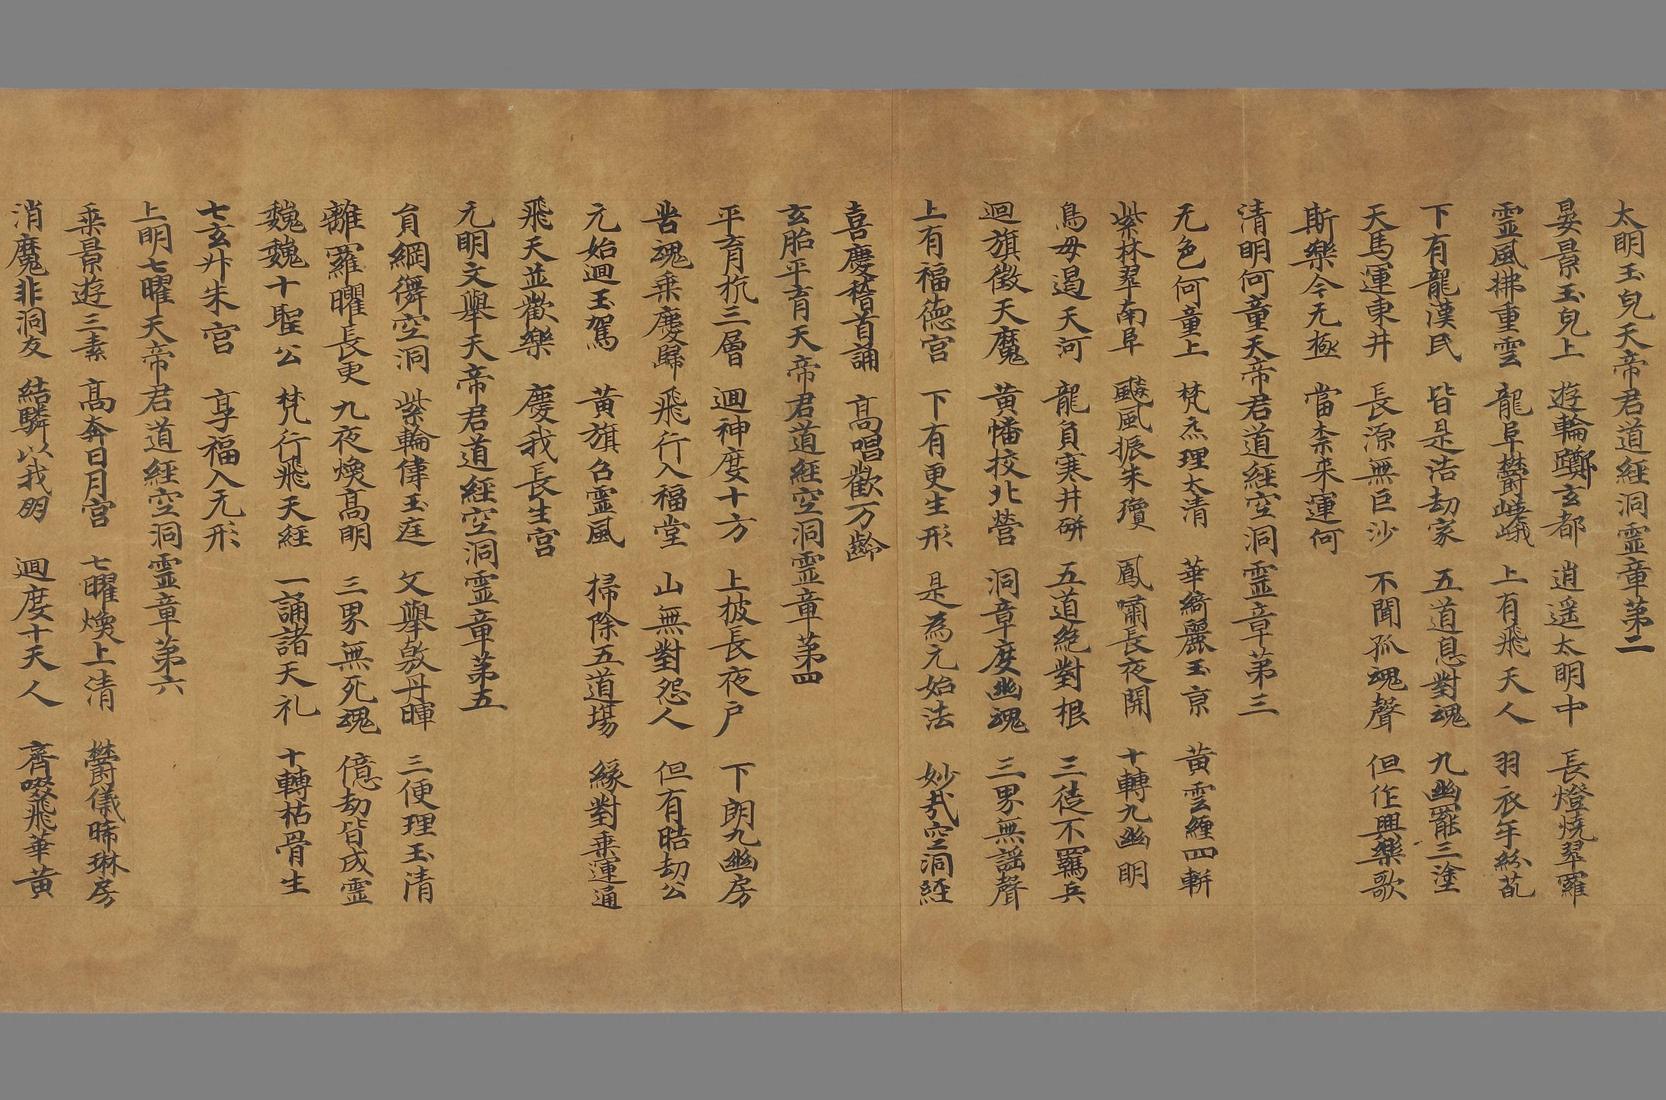 太明玉皃天帝君道經洞靈章第二
晏景玉皃上 遊輪躑玄都 逍遥太明中 長燈燒翠羅
靈風拂重雲 龍阜欝嵯峨 上有飛天人 羽衣年紛葩
下有龍漢民 皆是浩劫家 五道息對魂 九幽罷三塗
天馬運東井 長源無巨沙 不聞孤魂聲 但作興樂歌
斯樂令无極 當柰來運何
清明何童天帝君道經空洞靈章第三
无色何童上 梵炁理太清 華綺麗玉京 黄雲纏四軿
紫林翠南阜 飈風振朱瓊 鳳嘯長夜開 十轉九幽明
鳥母遏天河 龍負寒井硑 五道絶對根 三徒不羅兵
迴旗徵天魔 黄幡挍北營 洞章度幽魂 三界無謡聲
上有福德宫 下有更生形 是為元始法 妙哉空洞經
喜慶稽首誦 髙唱歡万齡
玄胎平育天帝君道經空洞靈章第四
平育抗三層 迴神度十方 上披長夜户 下朗九幽房
苦魂乘慶歸 飛行入福堂 山無對怨人 但有晧劫公
元始迴玉駕 黄旗召靈風 掃除五道場 緣對乗運通
飛天並歡樂 慶我長生宫
元明文舉天帝君道經空洞靈章第五
負網儛空洞 紫輪偉玉庭 文舉敫丹暉 三便理玉清
離羅曜長更 九夜煥髙明 三界無死魂 億劫皆成靈
魏魏十聖公 梵行飛天經 一誦諸天礼 十轉枯骨生
七玄升朱宫 享福入无形
上明七曜天帝君道經空洞靈章第六
乘景遊三素 髙奔日月宫 七曜煥上清 欝儀晞琳房
消魔非洞友 結驎以我朗 迴度十天人 齊啜飛華黄